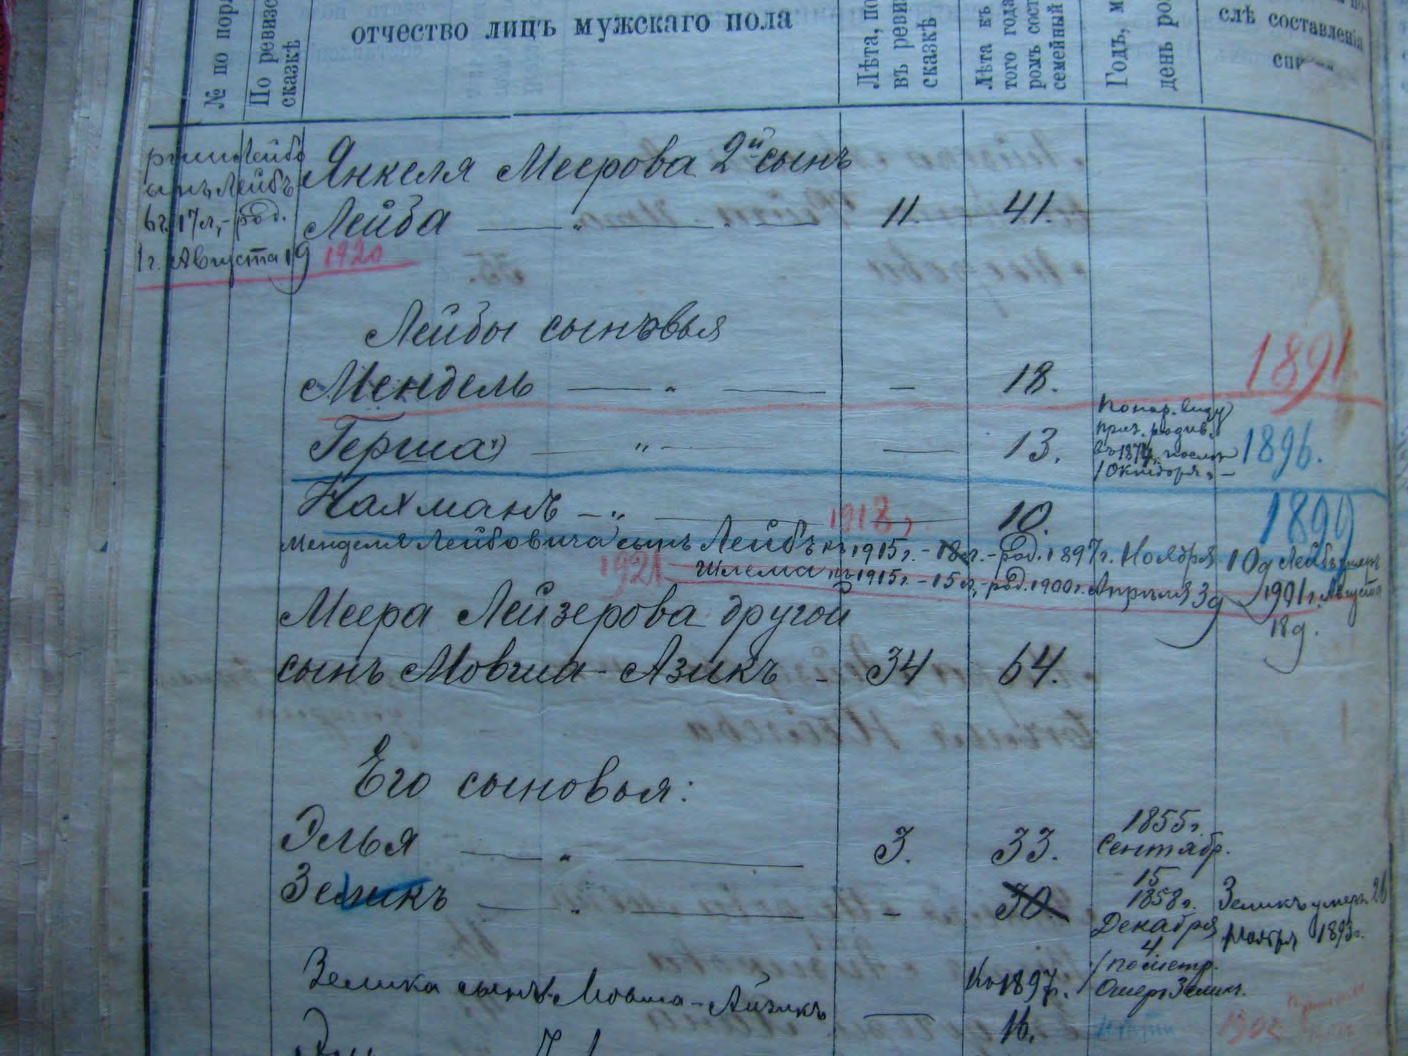 № по поряд
По ревизс
сказкѣ
отчество лицъ мужскаго пола
Лѣта, по
въ реви
сказкѣ
Лѣта къ
того года
ромъ сост
семейный
Годъ, м
день ро
слѣ составленія
Лейбъ
17 л., - род.
1 г. Августа 19 1920
Янкеля Меерова 2й сынъ
Лейба — " — 11. 41.
Лейбы сыновья
Мендель — " — — 18. 1891.
Герша — " — — 13. 1896.
1 Октября. –
Нахманъ — " — 10. 1899
1918
Менделя Лейбовича сынъ Лейбъ къ 1915 г. - 18 л. - род. 1897 г. Ноября 10 д Лейбъ умеръ
1921 Шлема къ 1915 г. - 15 л., - род. 1900 г. Апрѣля 3 д 1901 г. Августа
18 д.
Меера Лейзерова другой
сынъ Мовша - Азикъ - 34 64.
Его сыновья:
Элья — " — 3. 33. 1855 г.
Сентябр.
15
Зеликъ — " — - 30. 1858 г.
Декабря
4
Зеликъ умеръ 26
Ноября 1893 г.
Зелика сынъ Мовша - Айзикъ — Къ 1897 г.
16.
по метр.
1902